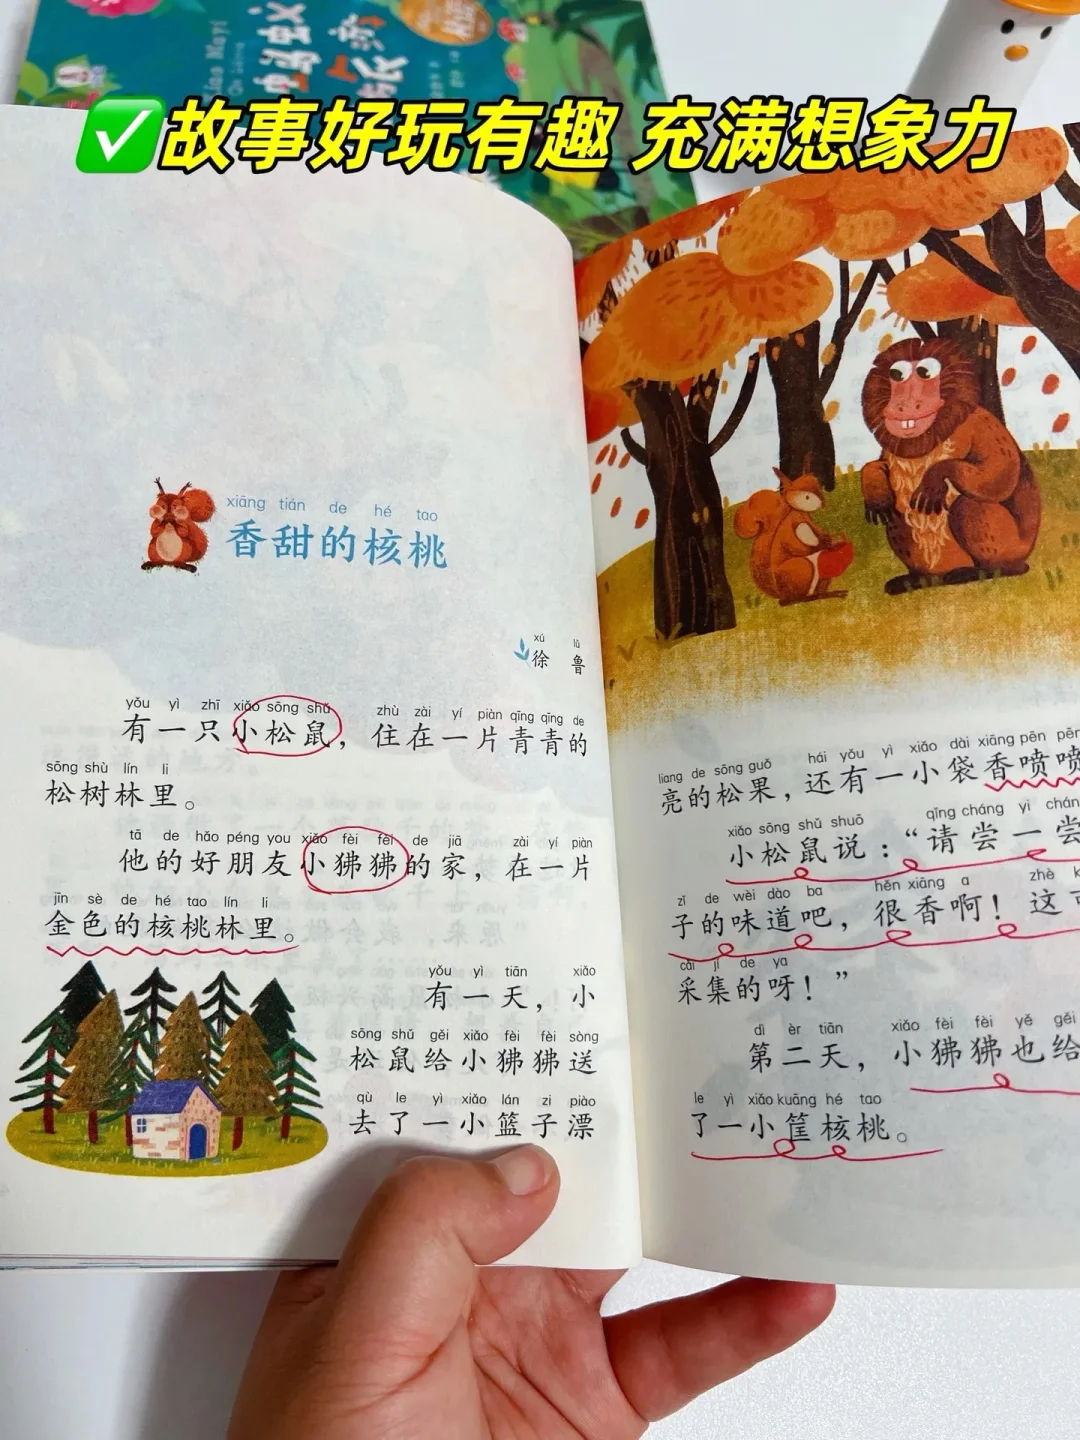 Mayi
蚂蚁
✅故事好玩有趣 充满想象力
xiāng tián de hé tao
香甜的核桃
xú lǔ
徐 鲁
yǒu yì zhī xiǎo sōng shǔ zhù zài yí piàn qīng qīng de
有一只小松鼠，住在一片青青的
sōng shù lín li
松树林里。
tā de hǎo péng you xiǎo fèi fèi de jiā zài yí piàn
他的好朋友小狒狒的家，在一片
jīn sè de hé tao lín li
金色的核桃林里。
yǒu yì tiān xiǎo
有一天，小
sōng shǔ gěi xiǎo fèi fèi sòng
松鼠给小狒狒送
qù le yì xiǎo lán zi piào
去了一小篮子漂
liang de sōng guǒ hái yǒu yì xiǎo dài xiāng pēn pēn
亮的松果，还有一小袋香喷喷
xiǎo sōng shǔ shuō qǐng cháng yì chán
小松鼠说：“请尝一尝
zǐ de wèi dào ba hěn xiāng a zhè k
子的味道吧，很香啊！这可
cǎi jí de ya
采集的呀！”
dì èr tiān xiǎo fèi fèi yě gěi
第二天，小狒狒也给
le yì xiǎo kuāng hé tao
了一小筐核桃。